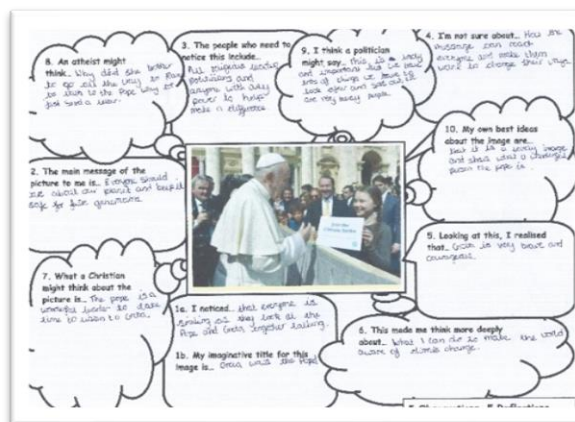 8. An atheist might
think.. Why did she bother
to go all the way to
to the Pope why not
just send a
3. The people who need to
notice this include..
All religious leaders
politicians and
anyone with any
power to help
make a difference
9. I think a politician
might say.. This is a lovely
and important but we have
lots of things we have to
look after and sort out we
are very busy people.
4. I'm not sure about... How the
message can reach
everyone and make them
want to change their ways
10. My own best ideas
about the image are..
that it is a lovely image
and shows what a
person the pope is.
2. The main message of the
picture to me is.. Everyone should
care about our planet and keep it
safe for generations
5. Looking at this, I realised
that.. Greta is very brave and
courageous.
7. What a Christian
might think about the
picture is.. The pope is a
wonderful leader to take
time to listen to Greta.
1a. I noticed.. that everyone is
smiling as they look at the
Pope and Greta together talking.
1b. My imaginative title for this
image is.. Greta the Pope!
6. This made me think more deeply
about.. What I can do to make the world
aware of climate change.